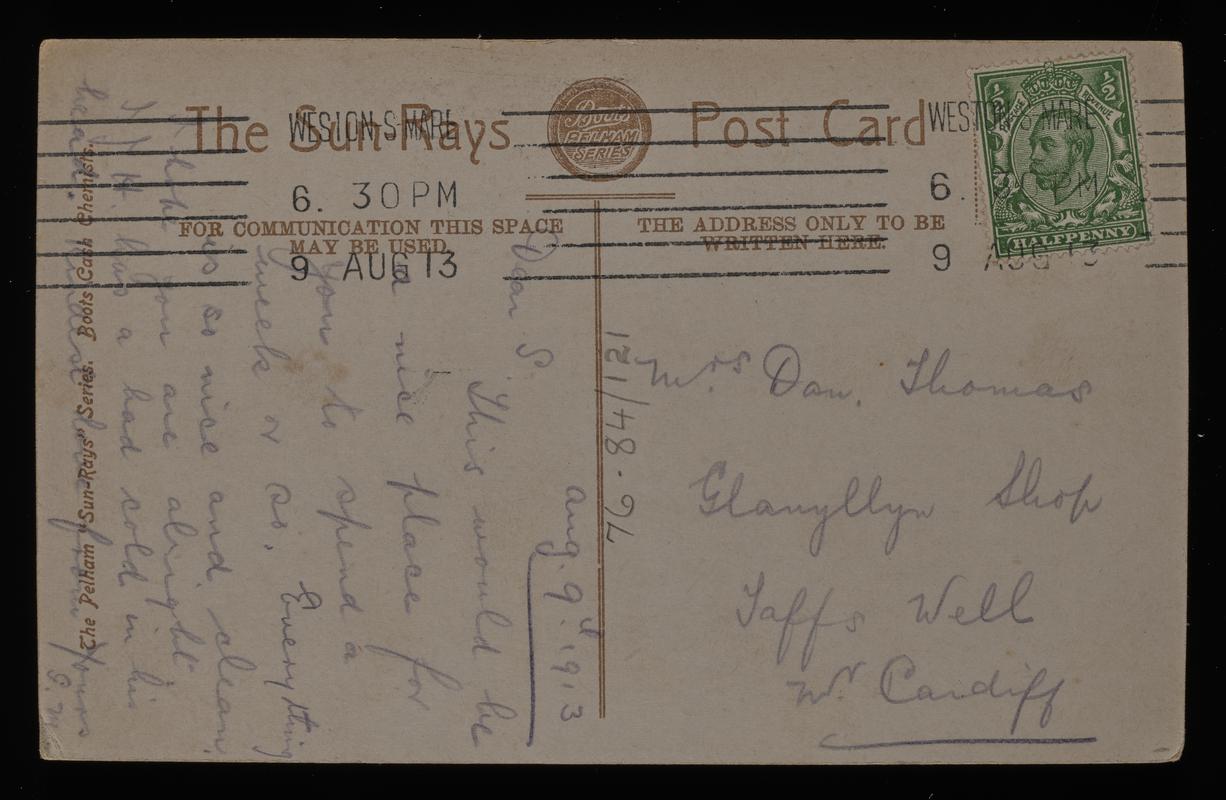 The Sun-Rays Post Card
Boots
PELHAM
SERIES
WESTON-S-MARE
6. 30 PM
9 AUG 13
WESTON-S-MARE
6. 30 PM
9 AUG 13
POSTAGE REVENUE
½ ½
HALFPENNY
FOR COMMUNICATION THIS SPACE
MAY BE USED.
THE ADDRESS ONLY TO BE
WRITTEN HERE.
Aug. 9th 1913
Dear S.
This would be
a nice place for
you to spend a
week or so. Everything
is so nice and clean.
I hope you are alright
J. H. has a bad cold in his
head. love from Yours
S. M.
121/48.76
Mrs Dan. Thomas
Glanyllyn Shop
Taffs Well
Nr Cardiff
The Pelham "Sun-Rays" Series. Boots Cash Chemists.